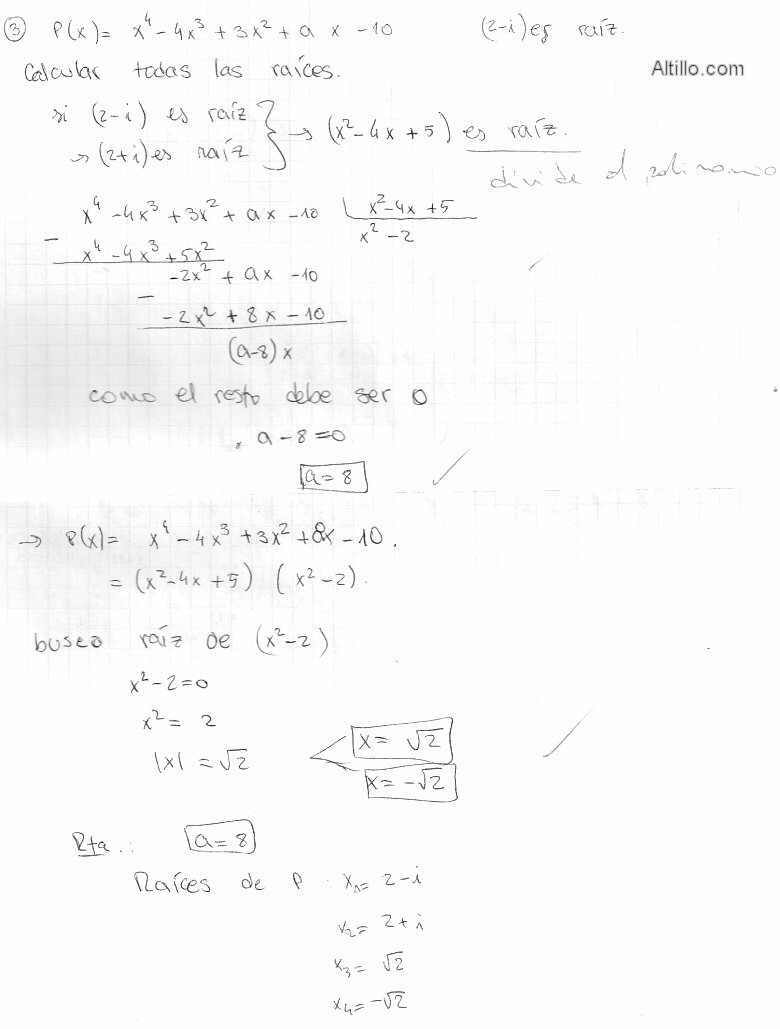 ③ P(x)= x⁴ - 4x³ + 3x² + a x - 10 (2-i) es raíz.
Altillo.com
Calcular todas las raíces.
si (2-i) es raíz
→ (2+i) es raíz } → (x² - 4x + 5) es raíz.
divide el polinomio
x⁴ - 4x³ + 3x² + ax - 10 | x² - 4x + 5
- x⁴ - 4x³ + 5x² x² - 2
-2x² + ax - 10
- -2x² + 8x - 10
(a-8) x
como el resto debe ser 0
, a - 8 = 0
a = 8
→ P(x)= x⁴ - 4x³ + 3x² + 8x - 10.
= (x² - 4x + 5) (x² - 2).
busco raíz de (x² - 2)
x² - 2 = 0
x² = 2
|x| = √2 < x = √2
x = -√2
Rta.: a = 8
Raíces de P : x₁ = 2 - i
x₂ = 2 + i
x₃ = √2
x₄ = -√2